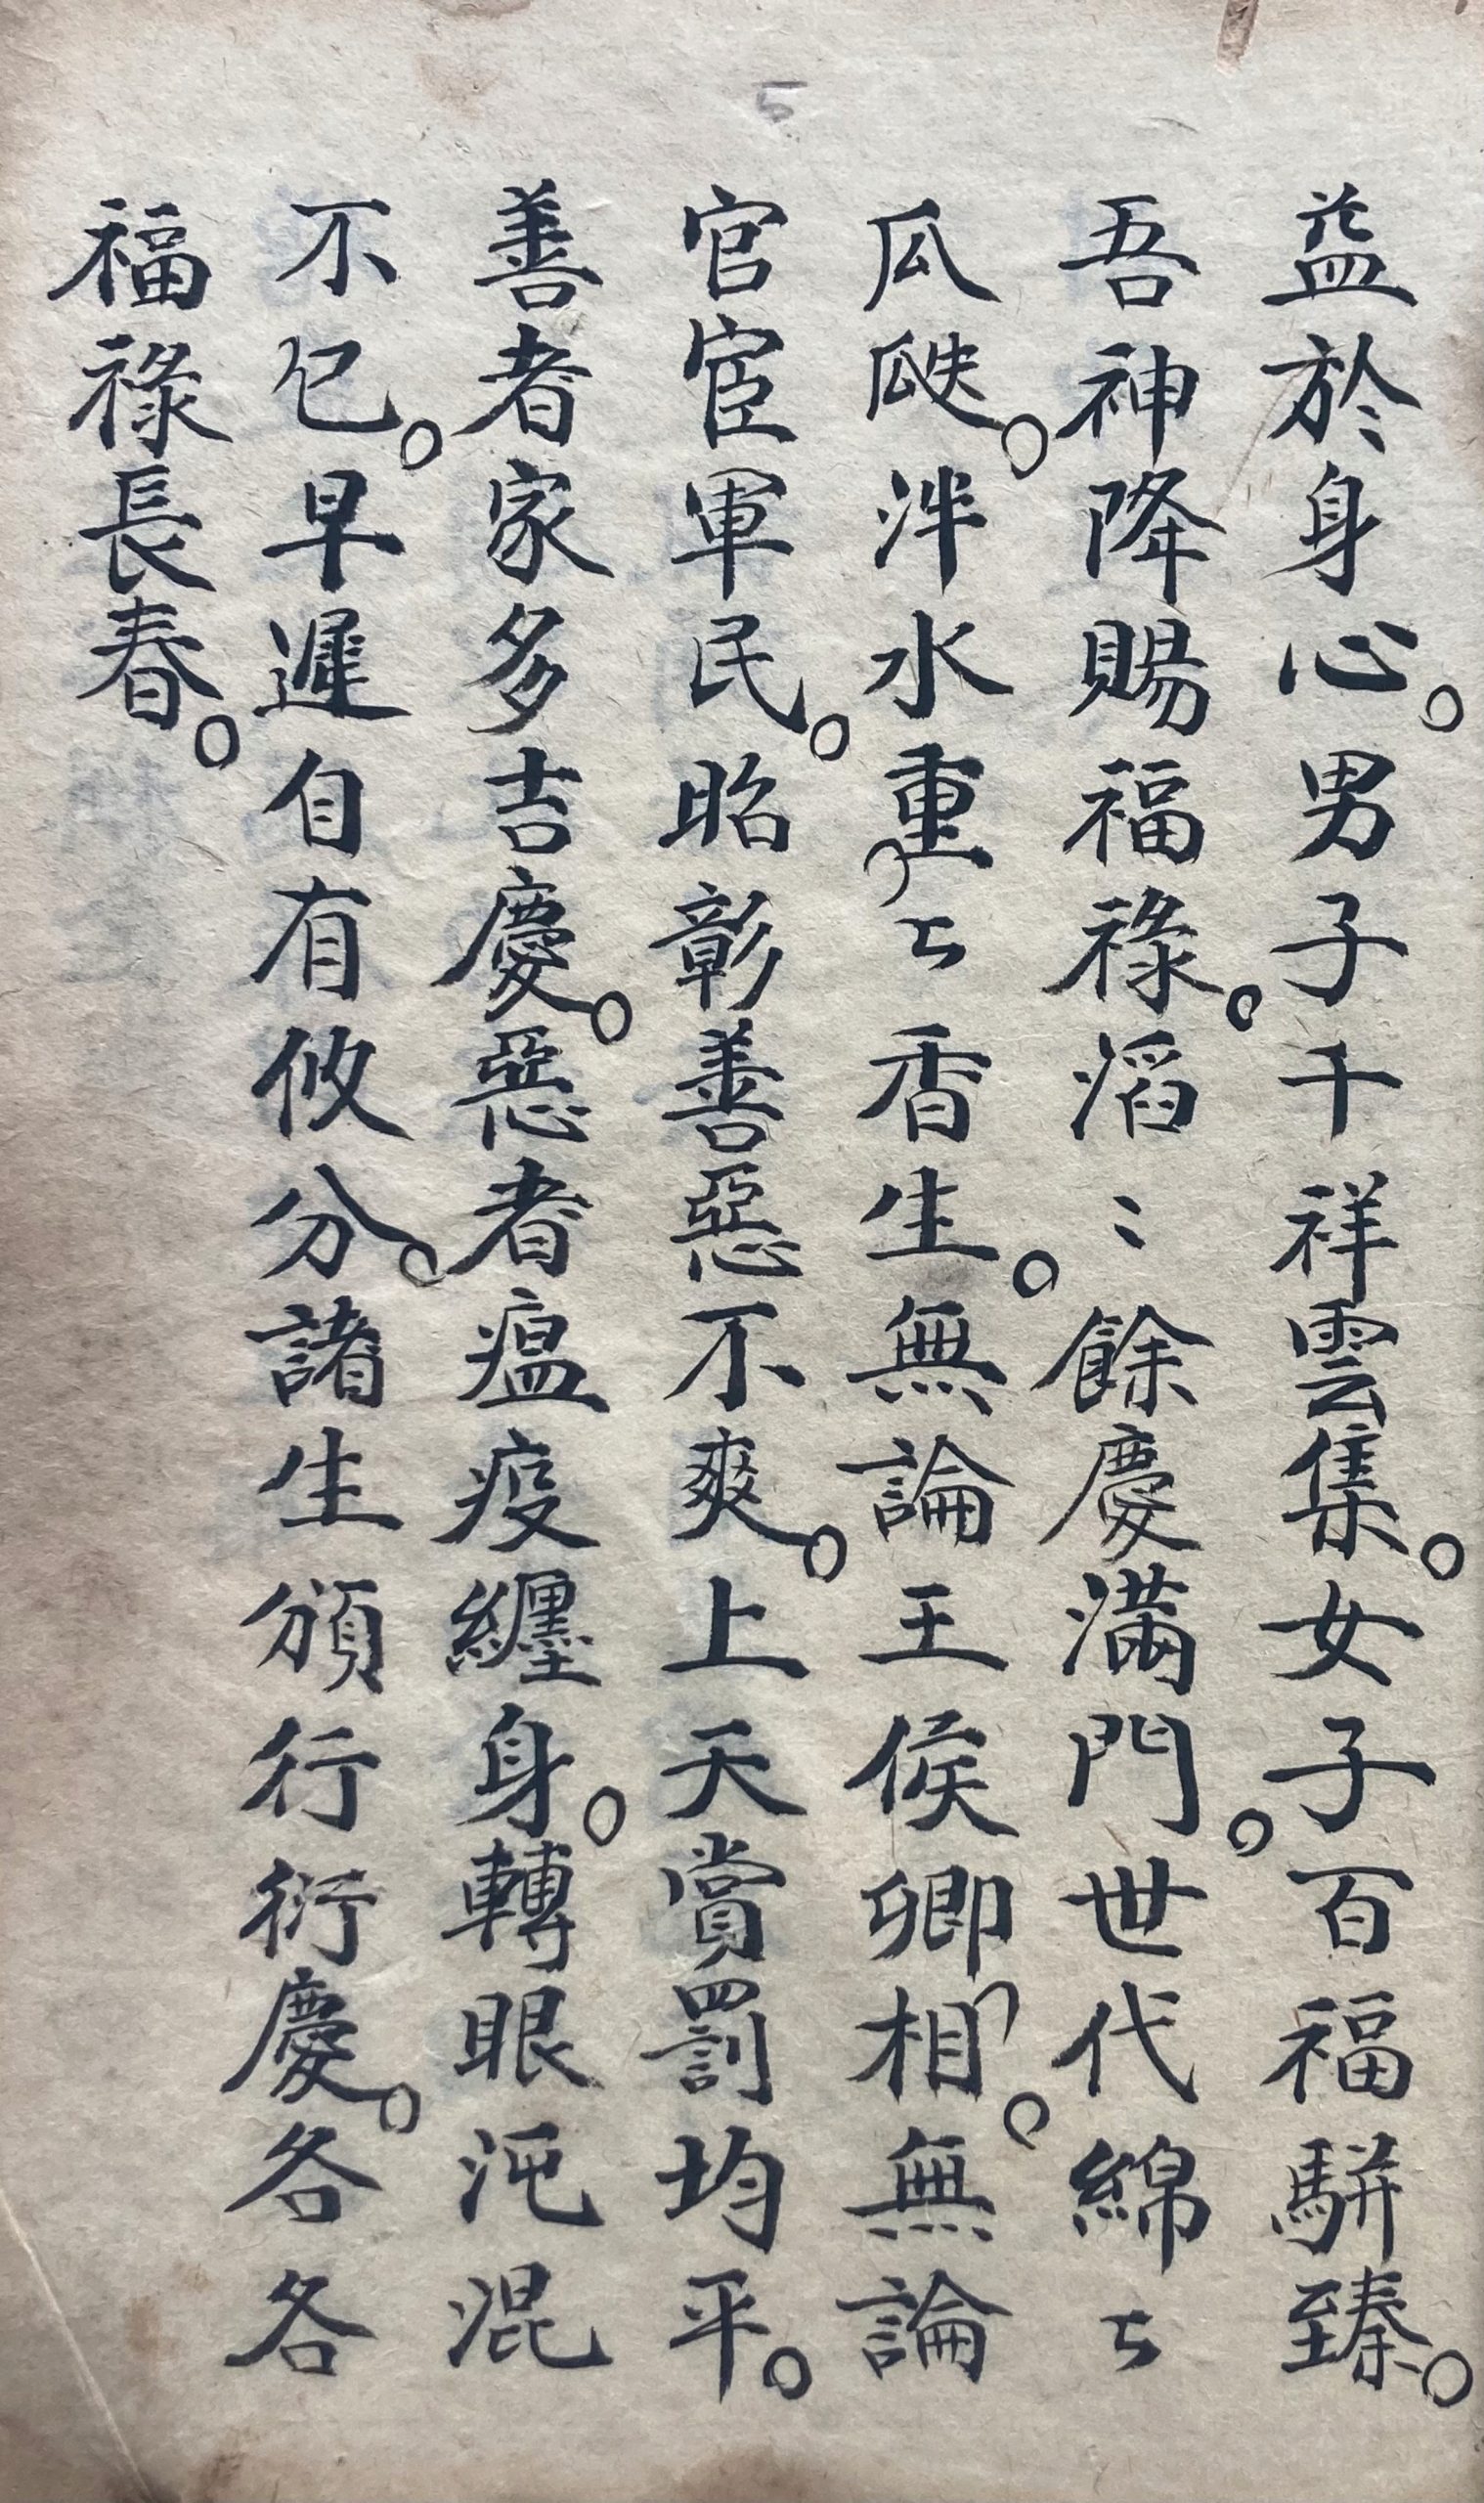 益於身心。男子千祥雲集。女子百福駢臻。
吾神降賜福祿。滔〻餘慶滿門。世代綿〻
瓜瓞。泮水重〻香生。無論王侯卿相。無論
官宦軍民。昭彰善惡不爽。上天賞罰均平。
善者家多吉慶。惡者瘟疫纏身。轉眼沌混
不乜。早遲自有攸分。諸生頒行衍慶。各各
福祿長春。
5